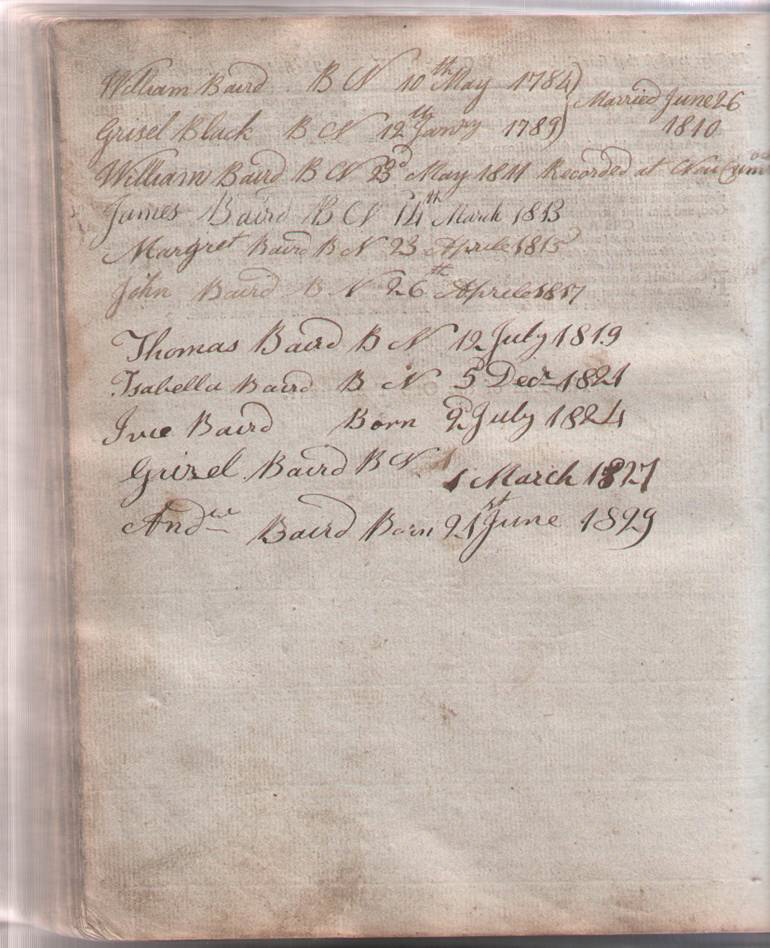 William Baird B N 10th May 1784) Married June 26
Grisel Black B N 12th Janry 1789) 1810
William Baird B N 23d May 1811 Recorded at New
James Baird B N 14th March 1813
Margret Baird B N 23 Aprile 1815
John Baird B N 26th Aprile 1817
Thomas Baird B N 12 July 1819
Isabella Baird B N 5 Decr 1821
Baird Born 2d July 1824
Grizel Baird B N 1 March 1827
Andw Baird Born 21st June 1829